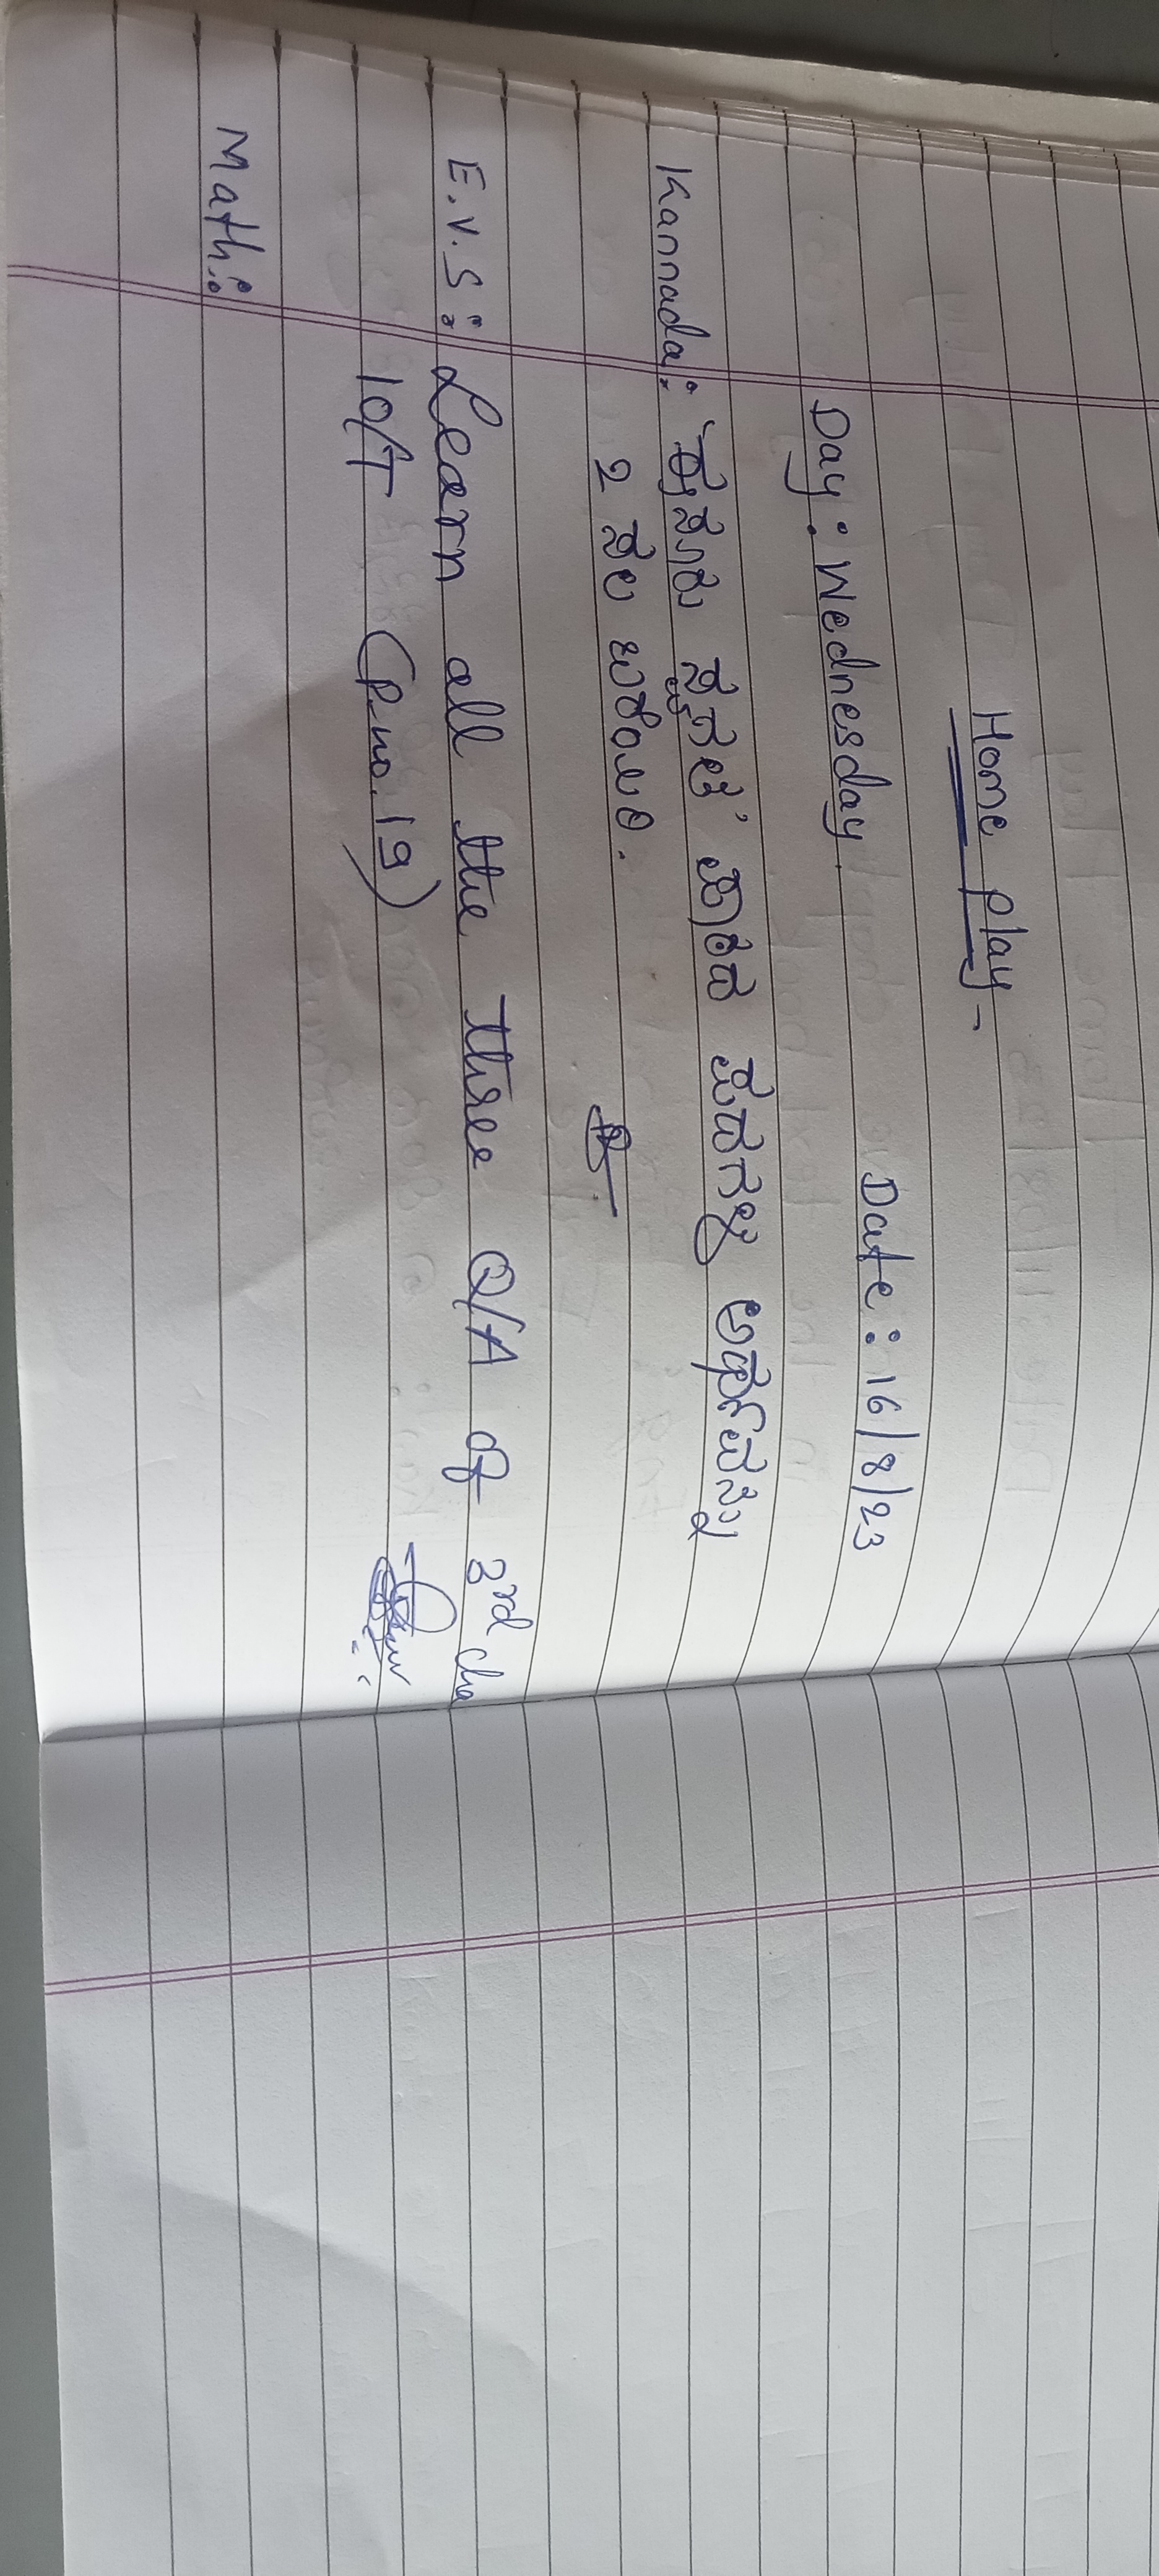 Home play -
Day : Wednesday. Date : 16/8/23
Kannada : ' ಹೃಸಿರು ಸ್ವರ್ಗದ ' ಪಾಠದ ಪದಗಳು ಅರ್ಥವನ್ನು
2 ಸಲ ಬರೆಯಿರಿ.
E.V.S : Learn all the three Q/A of 3rd cha
10/T (P.no. 19)
Math :